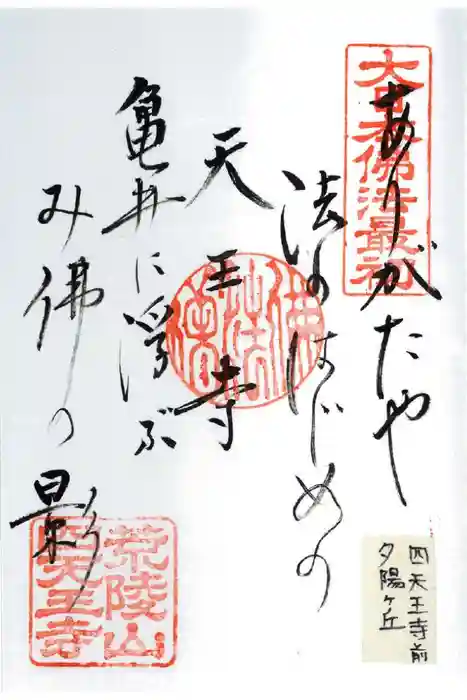 ありがたや
法のはじめの
天王寺
亀井に浮ぶ
み佛の影
大日本佛法最初
荒陵山
四天王寺
四天王寺前
夕陽ヶ丘